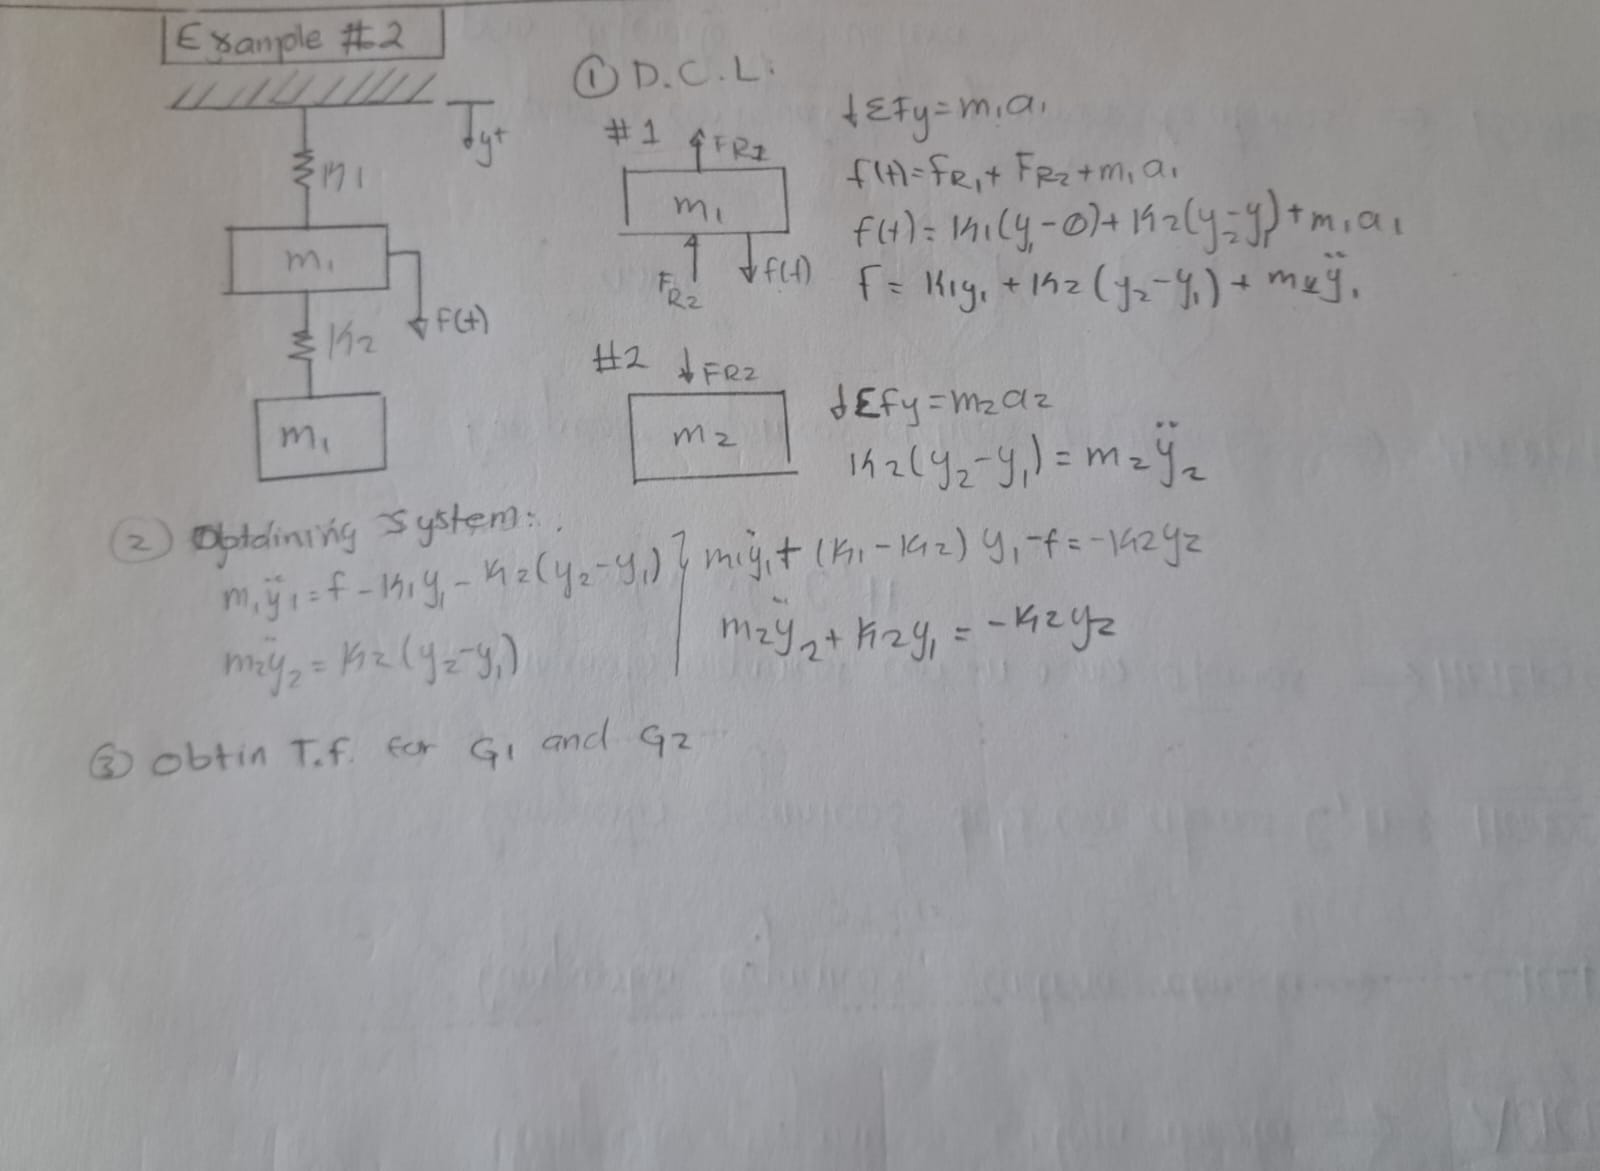 Example #2
y+
k1
m1
k2
f(t)
m1
① D.C.L:
#1
FR1
m1
FR2
f(t)
↓ΣFy=m1a1
f(t)=FR1+FR2+m1a1
f(t)=k1(y1-0)+k2(y2-y1)+m1a1
F=k1y1+k2(y2-y1)+m1ÿ1
#2
FR2
m2
↓ΣFy=m2a2
k2(y2-y1)=m2ÿ2
② Obtaining system:
m1ÿ1=f-k1y1-k2(y2-y1)
m2ÿ2=k2(y2-y1)
m1ÿ1+(k1-k2)y1-f=-k2y2
m2ÿ2+k2y1=-k2y2
③ Obtin T.f. for G1 and G2